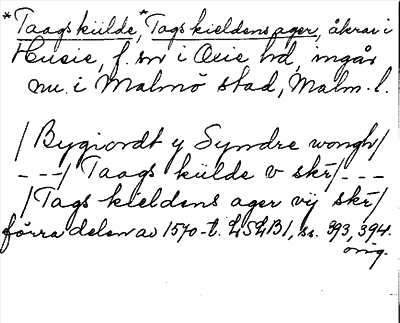 *Taagskiilde, *Tagskieldens ager, åkrar i
Husie, f. sn i Oxie hd, ingår
nu i Malmö stad, Malm. l.
/Bygiordt y Syndre wongh/
---/Taags kiilde v skr/---
/Tags kieldens ager vij skr/
förra delen av 1570-t. LSLB1, ss. 393, 394.
orig.